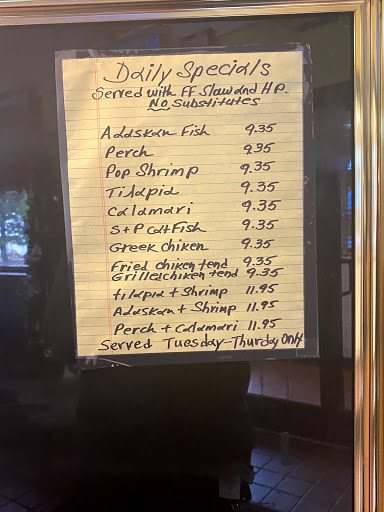 Daily Specials
Served with FF Slaw and H.P.
No Substitutes
Adaskan Fish 9.35
Perch 9.35
Pop Shrimp 9.35
Tilapia 9.35
Calamari 9.35
S+P CatFish 9.35
Greek chiken 9.35
Fried chiken tend 9.35
Grilled chiken tend 9.35
tilapia + Shrimp 11.95
Adaskan + Shrimp 11.95
Perch + Calamari 11.95
Served Tuesday-Thurday Only